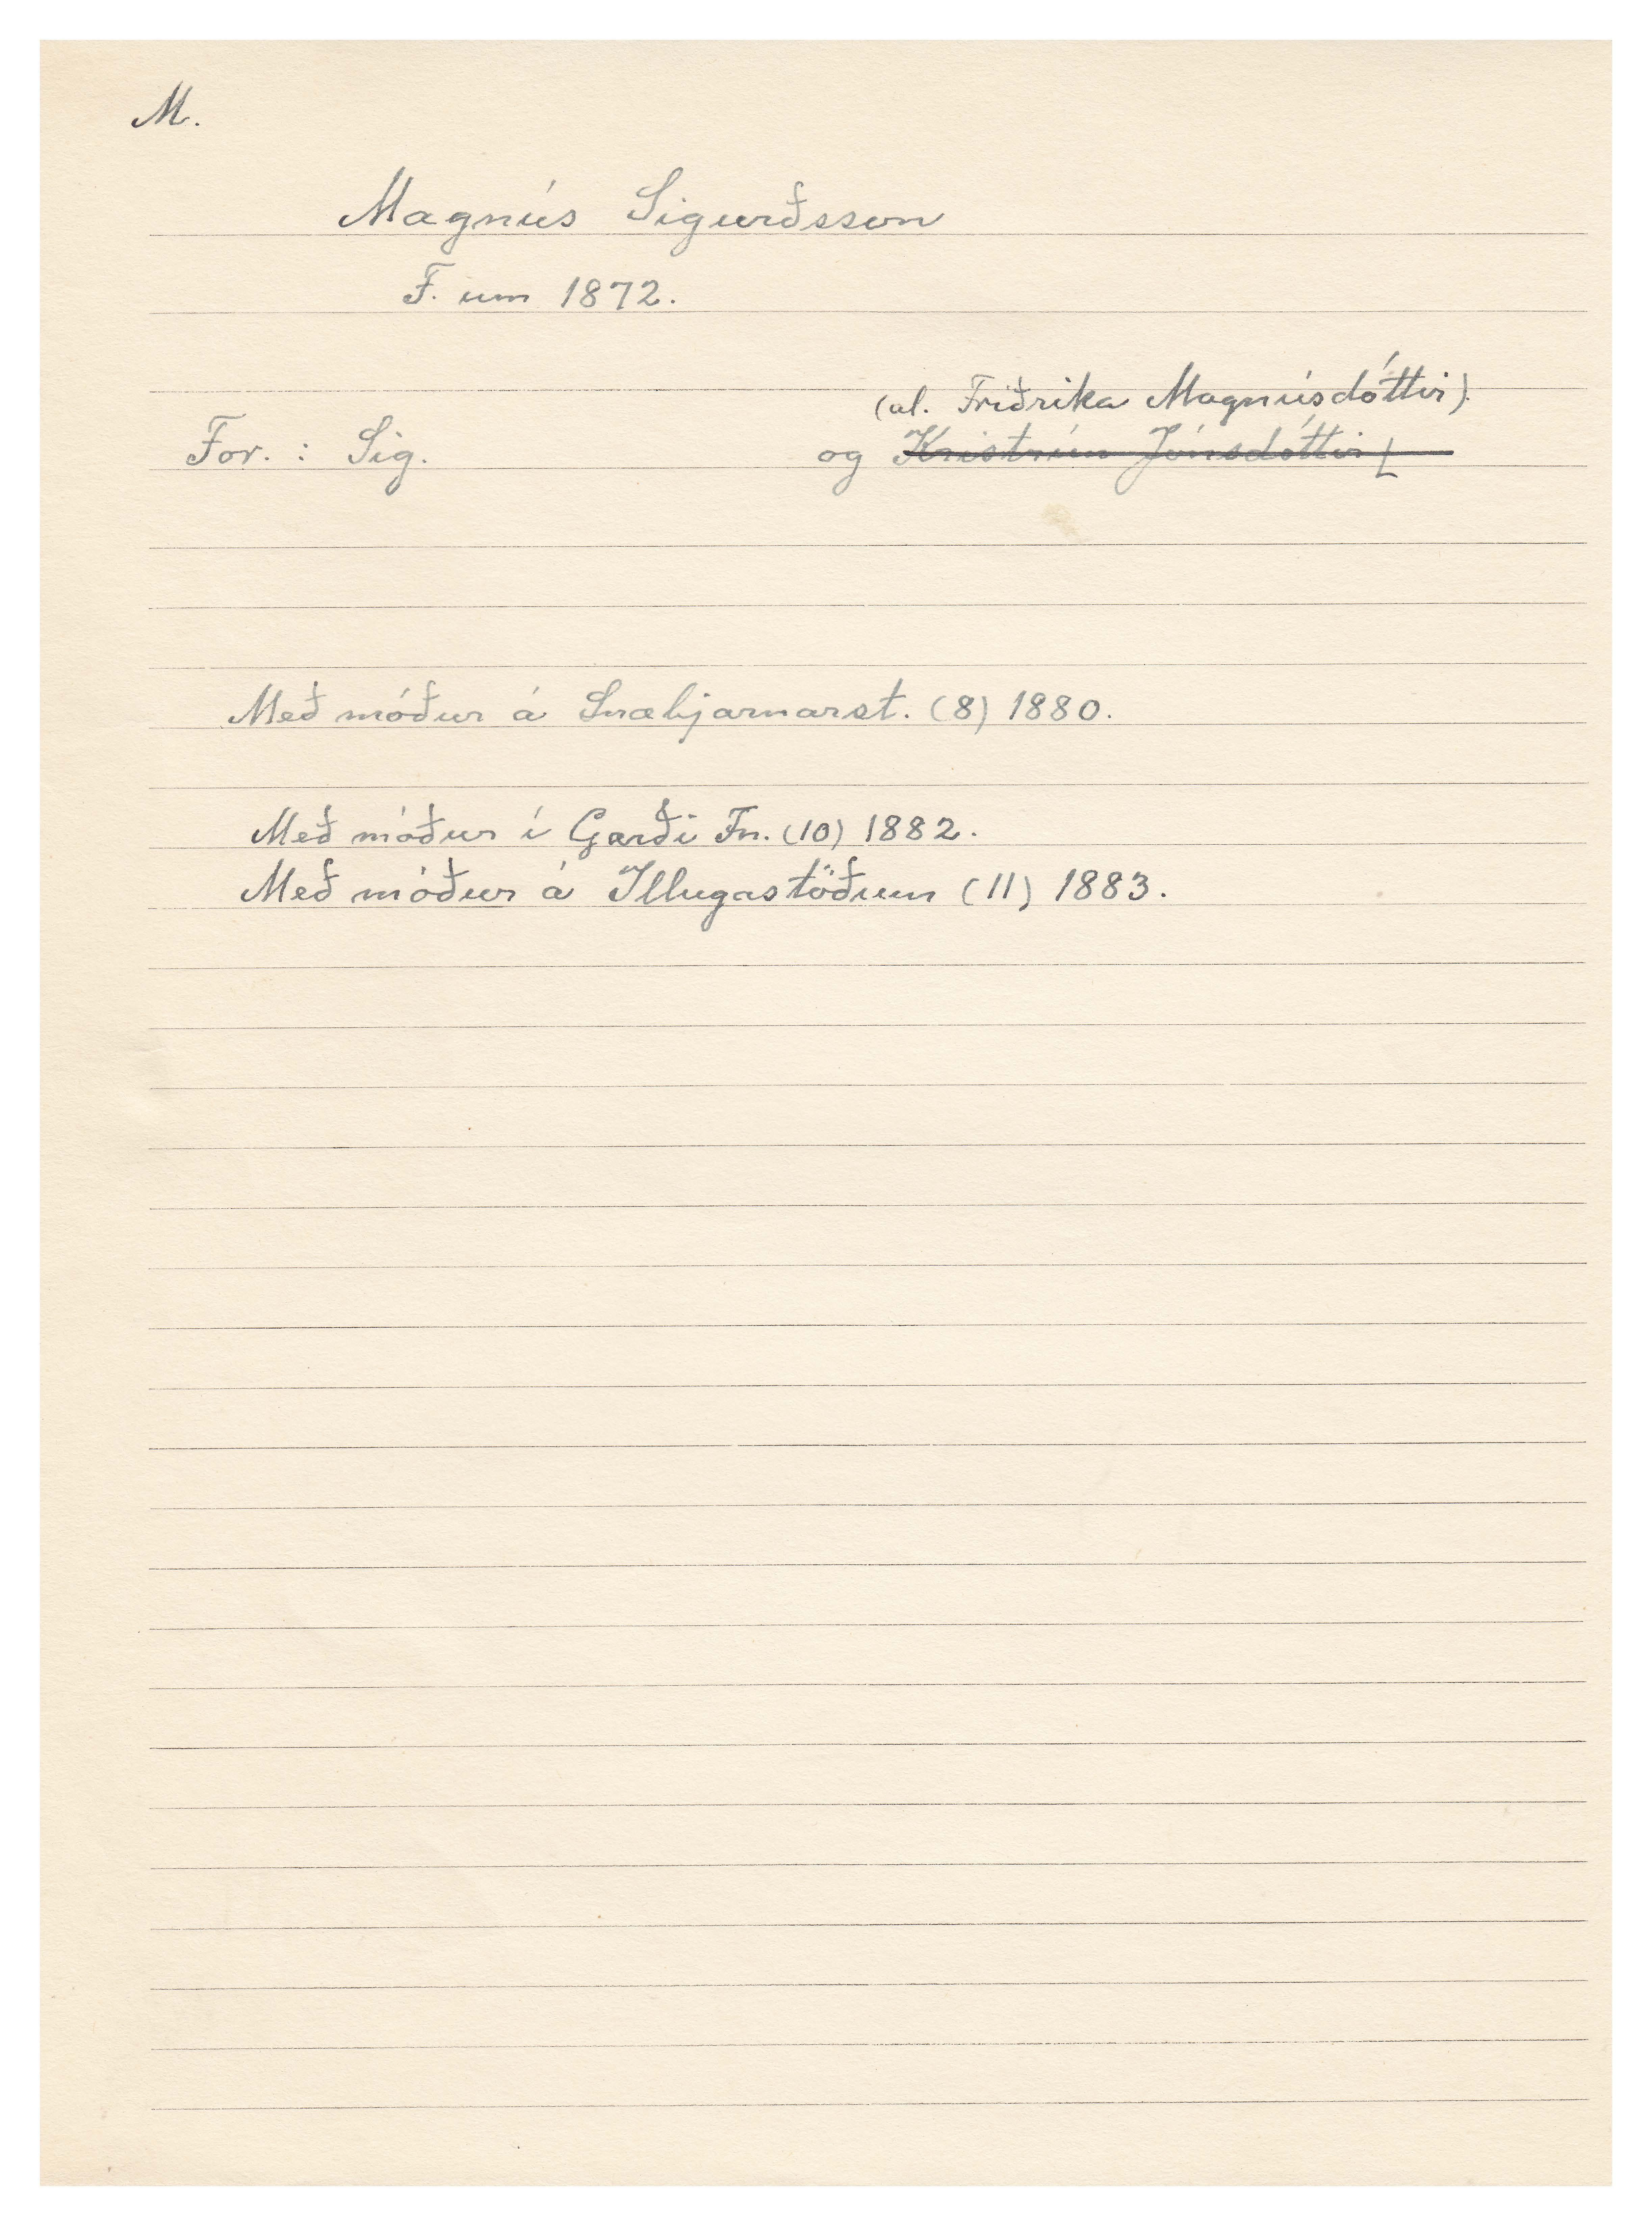 M.
Magnús Sigurðsson
F. um 1872.
(al. Friðrika Magnúsdóttir).
For. : Sig. og Kristrún Jónsdóttir
Með móður á Snæbjarnarst. (8) 1880.
Með móður í Garði Fn. (10) 1882.
Með móður á Illugastöðum (11) 1883.